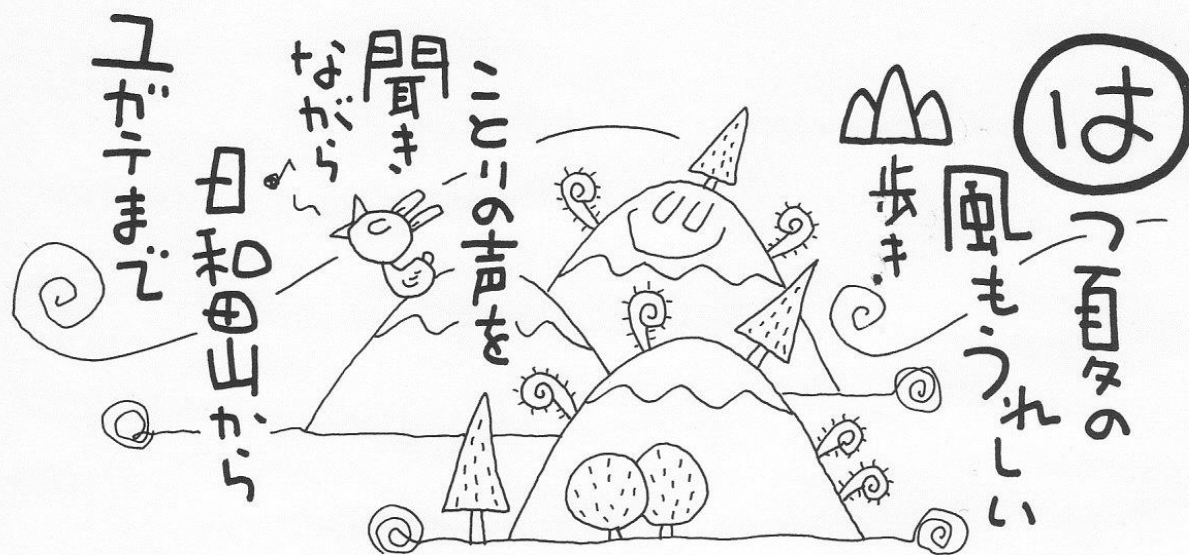 はつ夏の
風もうれしい
山歩き.
ことりの声を
聞き
ながら
日和田山から
ユガテまで